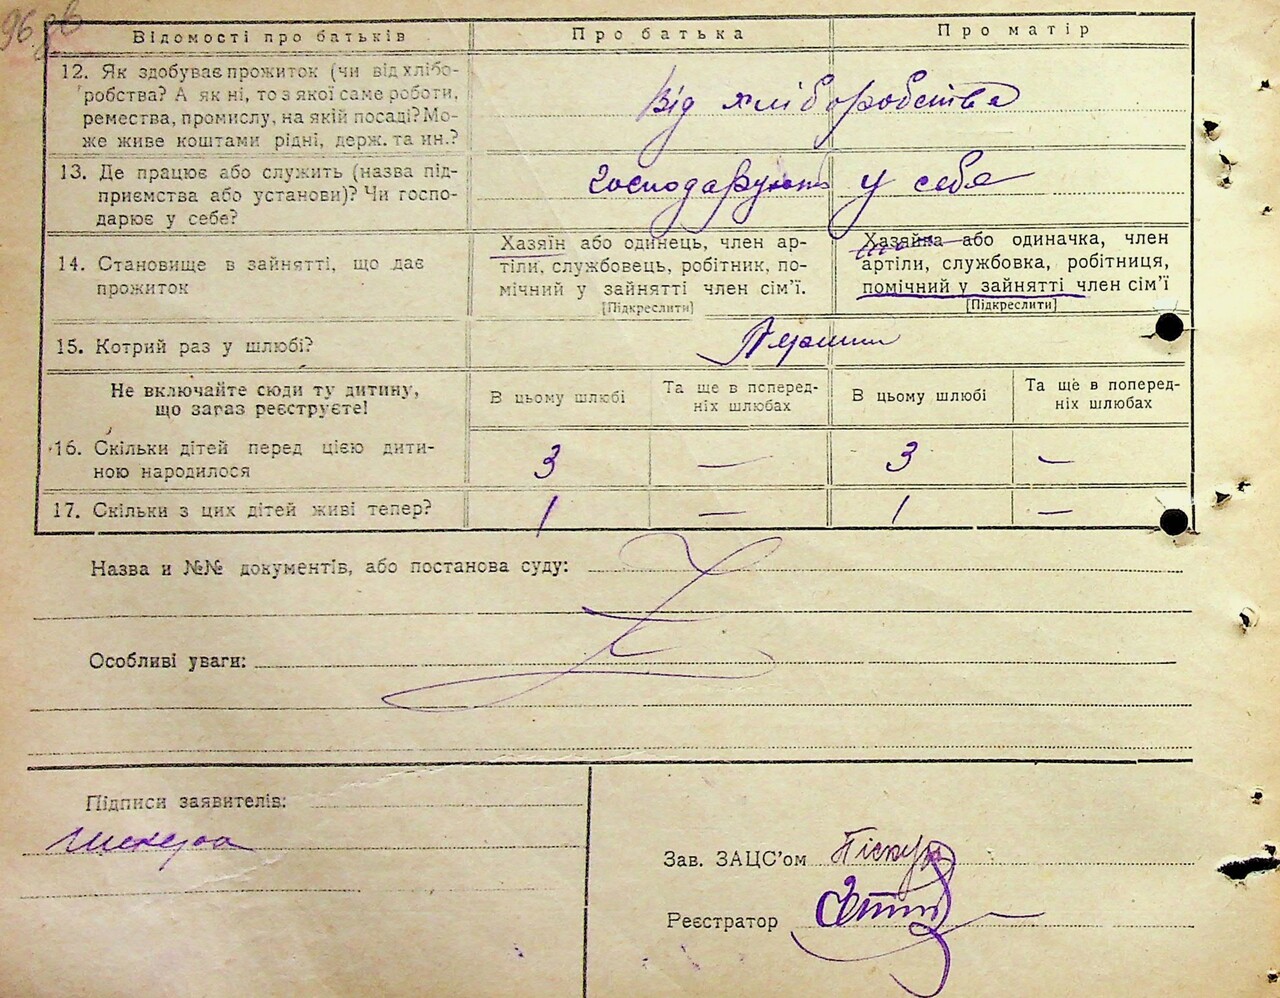 96 зв
Відомості про батьків
Про батька
Про матір
12. Як здобуває прожиток (чи від хлібо-
робства? А як ні, то з якої саме роботи,
ремества, промислу, на якій посаді? Мо-
же живе коштами рідні, держ. та ин.?
Від хліборобства
13. Де працює або служить (назва під-
приємства або установи)? Чи госпо-
дарює у себе?
Господарують у себе
14. Становище в зайнятті, що дає
прожиток
Хазяїн або одинець, член ар-
тіли, службовець, робітник, по-
мічний у зайнятті член сім’ї.
[Підкреслити]
Хазяйка або одиначка, член
артіли, службовка, робітниця,
помічний у зайнятті член сім’ї
[Підкреслити]
15. Котрий раз у шлюбі?
Перший
Не включайте сюди ту дитину,
що зараз реєструєте!
В цьому шлюбі
Та ще в поперед-
ніх шлюбах
В цьому шлюбі
Та ще в поперед-
ніх шлюбах
16. Скільки дітей перед цією дити-
ною народилося
3 — 3 —
17. Скільки з цих дітей живі тепер?
1 — 1 —
Назва и №№ документів, або постанова суду:
Особливі уваги:
Підписи заявителів:
Зав. ЗАЦС’ом Піскун
Реєстратор